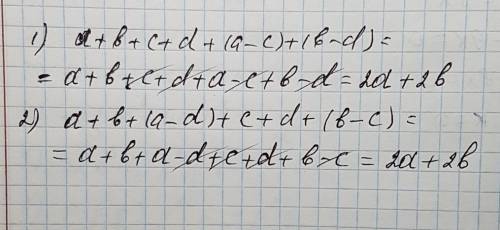 1) a+b+c+d+(a-c)+(b-d)=
=a+b+c+d+a-c+b-d=2a+2b
2) a+b+(a-d)+c+d+(b-c)=
=a+b+a-d+c+d+b-c=2a+2b